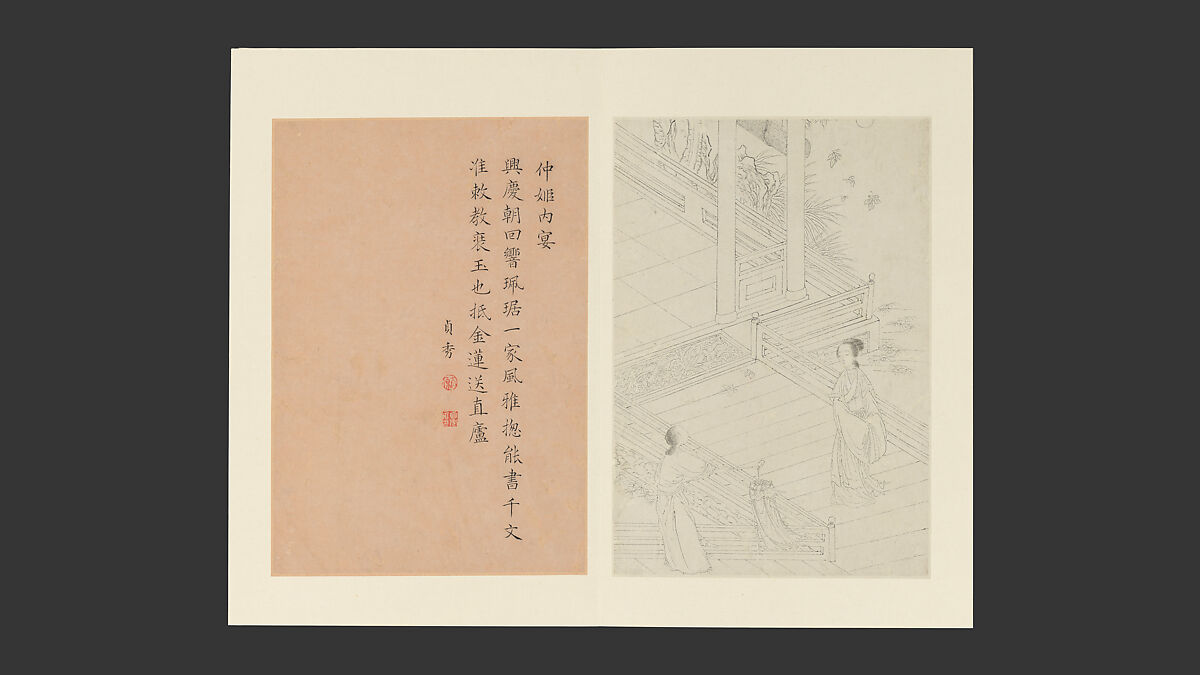 仲姬内宴
興慶朝回響珮琚一家風雅揔能書千文
准敕教裝玉也抵金蓮送直廬
貞秀